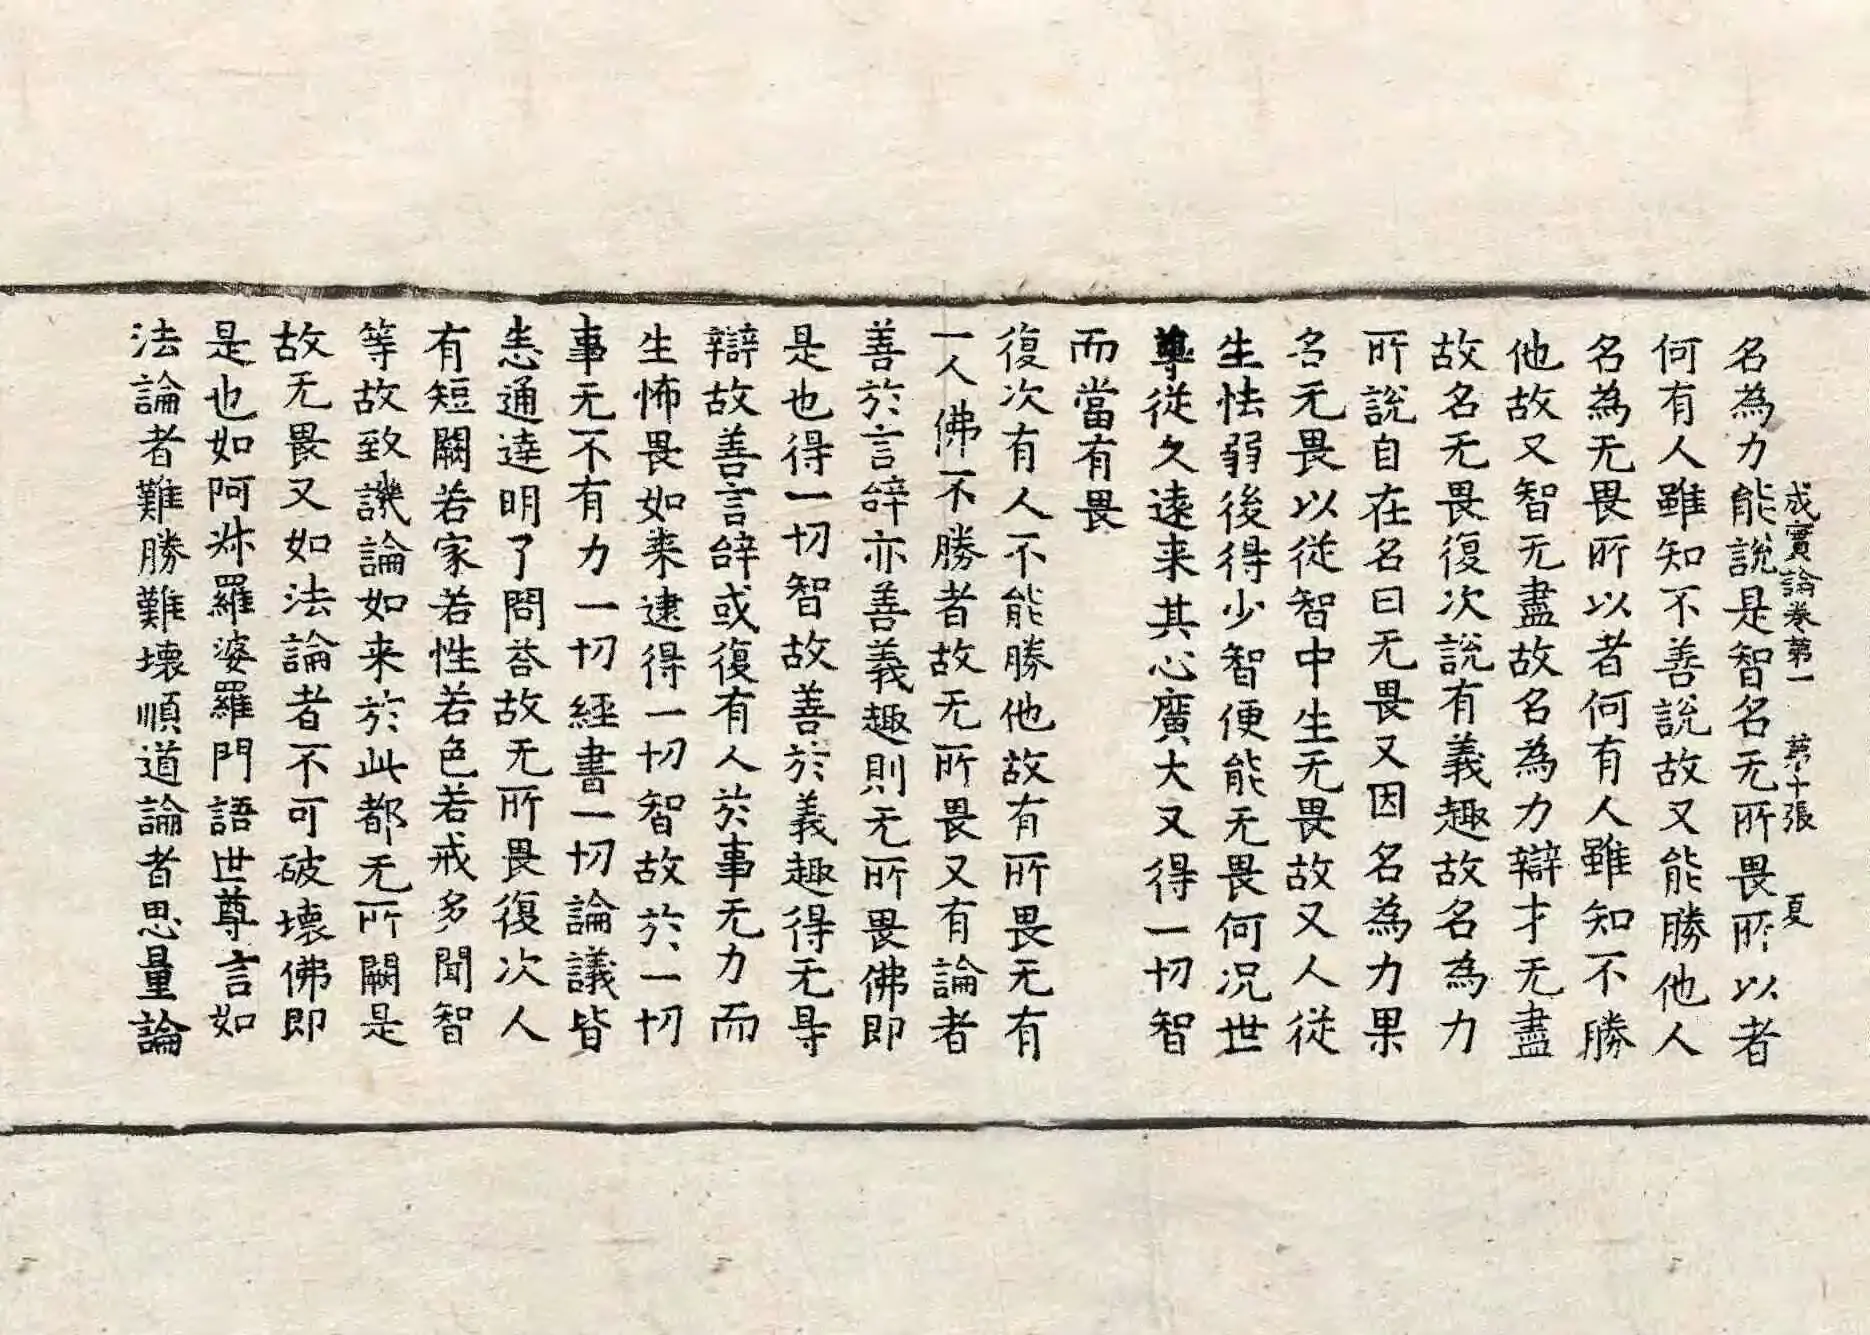 成實論卷第一　第十張　夏
名為力能說是智名无所畏所以者
何有人雖知不善說故又能勝他人
名為无畏所以者何有人雖知不勝
他故又智无盡故名為力辯才无盡
故名无畏復次說有義趣故名為力
所說自在名曰无畏又因名為力果
名无畏以從智中生无畏故又人從
生怯弱後得少智便能无畏何况世
尊從久遠来其心廣大又得一切智
而當有畏
復次有人不能勝他故有所畏无有
一人佛不勝者故无所畏又有論者
善於言辭亦善義趣則无所畏佛即
是也得一切智故善於義趣得无㝵
辯故善言辭或復有人於事无力而
生怖畏如来逮得一切智故於一切
事无不有力一切經書一切論議皆
悉通達明了問荅故无所畏復次人
有短闕若家若性若色若戒多聞智
等故致譏論如来於此都无所闕是
故无畏又如法論者不可破壞佛即
是也如阿㳽羅婆羅門語世尊言如
法論者難勝難壞順道論者思量論